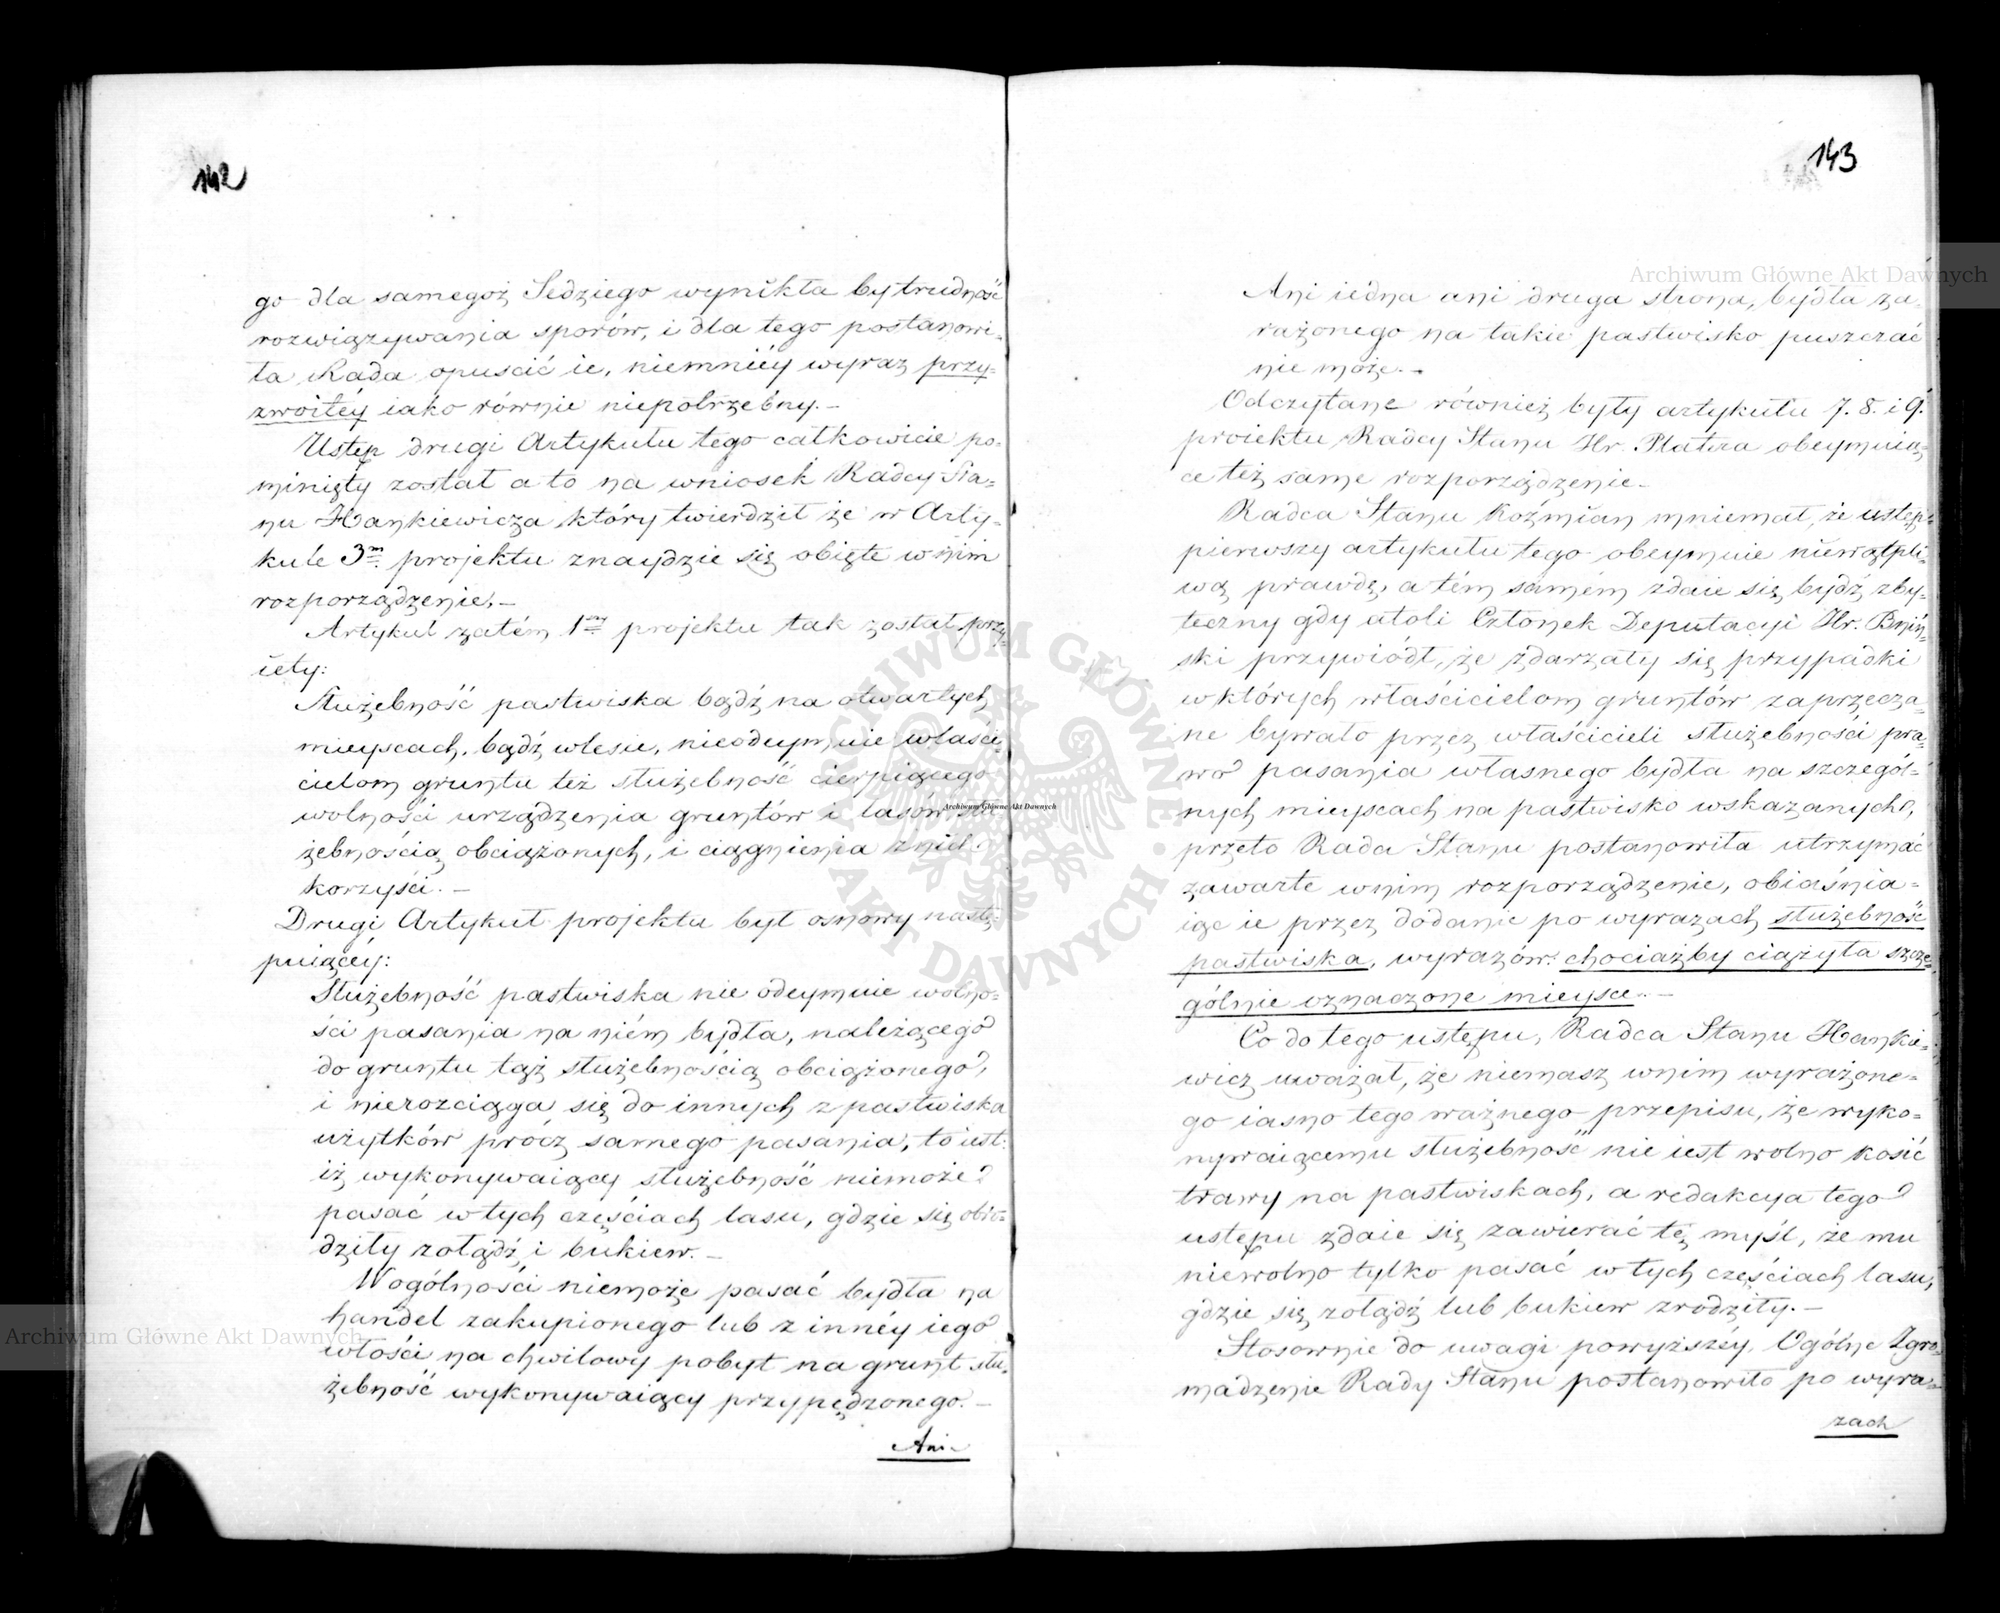 142
go dla samegoż Sędziego wynikła by trudność
rozwiązywania sporów, i dla tego postanowi-
ła Rada opuścić ie, niemniéy wyraz przy-
zwoitéy iako równie niepotrzebny. –
Ustęp drugi Artykułu tego całkowicie po-
minięty został a to na wniosek Radcy Sta-
nu Hankiewicza który twierdził że w Arty-
kule 3m. projektu znaydzie się obięte w nim
rozporządzenie. –
Artykuł zatém 1ny projektu tak został przy-
ięty:
Służebność pastwiska bądź na otwartych
mieyscach, bądź w lesie, nieodeymuie właści-
cielom gruntu też służebność cierpiącego
wolności urządzenia gruntów i lasów słu-
żebnością obciążonych, i ciągnienia z nich
korzyści. –
Drugi Artykuł projektu był osnowy nastę-
puiącéy:
Służebność pastwiska nie odeymuie wolno-
ści pasania na niém bydła, należącego
do gruntu tąż służebnością obciążonego,
i nierozciąga się do innych z pastwiska
użytków prócz samego pasania, to iest:
iż wykonywaiący służebność niemoże
pasać w tych częściach lasu, gdzie się obro-
dziły żołądź i bukiew. –
W ogólności niemoże pasać bydła na
handel zakupionego lub z innéy iego
włości na chwilowy pobyt na grunt słu-
żebność wykonywaiący przypędzonego. –
Ani
143
Ani iedna ani druga strona, bydła za-
rażonego na takie pastwisko puszczać
nie może. –
Odczytane również były artykułu 7. 8. i 9.
proiektu Radcy Stanu Hr. Platera obeymuią-
ce też same rozporządzenie. –
Radca Stanu Koźmian mniemał, że ustęp
pierwszy artykułu tego obeymuie niewątpli-
wą prawdę, a tém samém zdaie się bydź zby-
teczny gdy atoli Członek Deputacyi Hr. Bniń-
ski przywiódł, że zdarzały się przypadki
w których właścicielom gruntów zaprzecza-
ne bywało przez właścicieli służebności pra-
wo pasania własnego bydła na szczegól-
nych mieyscach na pastwisko wskazanych,
przeto Rada Stanu postanowiła utrzymać
zawarte w nim rozporządzenie, obiaśnia-
iąc ie przez dodanie po wyrazach służebność
pastwiska, wyrazów: chociażby ciążyła szcze-
gólnie oznaczone mieysce. –
Co do tego ustępu, Radca Stanu Hankie-
wicz uważał, że niemasz w nim wyrażone-
go iasno tego ważnego przepisu, że wyko-
nywaiącemu służebność nie iest wolno kosić
trawy na pastwiskach, a redakcya tego
ustępu zdaie się zawierać tę myśl, że mu
niewolno tylko pasać w tych częściach lasu,
gdzie się żołądź lub bukiew zrodziły. –
Stosownie do uwagi powyższéy, Ogólne Zgro-
madzenie Rady Stanu postanowiło po wyra-
zach
Archiwum Główne Akt Dawnych
Archiwum Główne Akt Dawnych
Archiwum Główne Akt Dawnych
ARCHIWUM GŁÓWNE AKT DAWNYCH